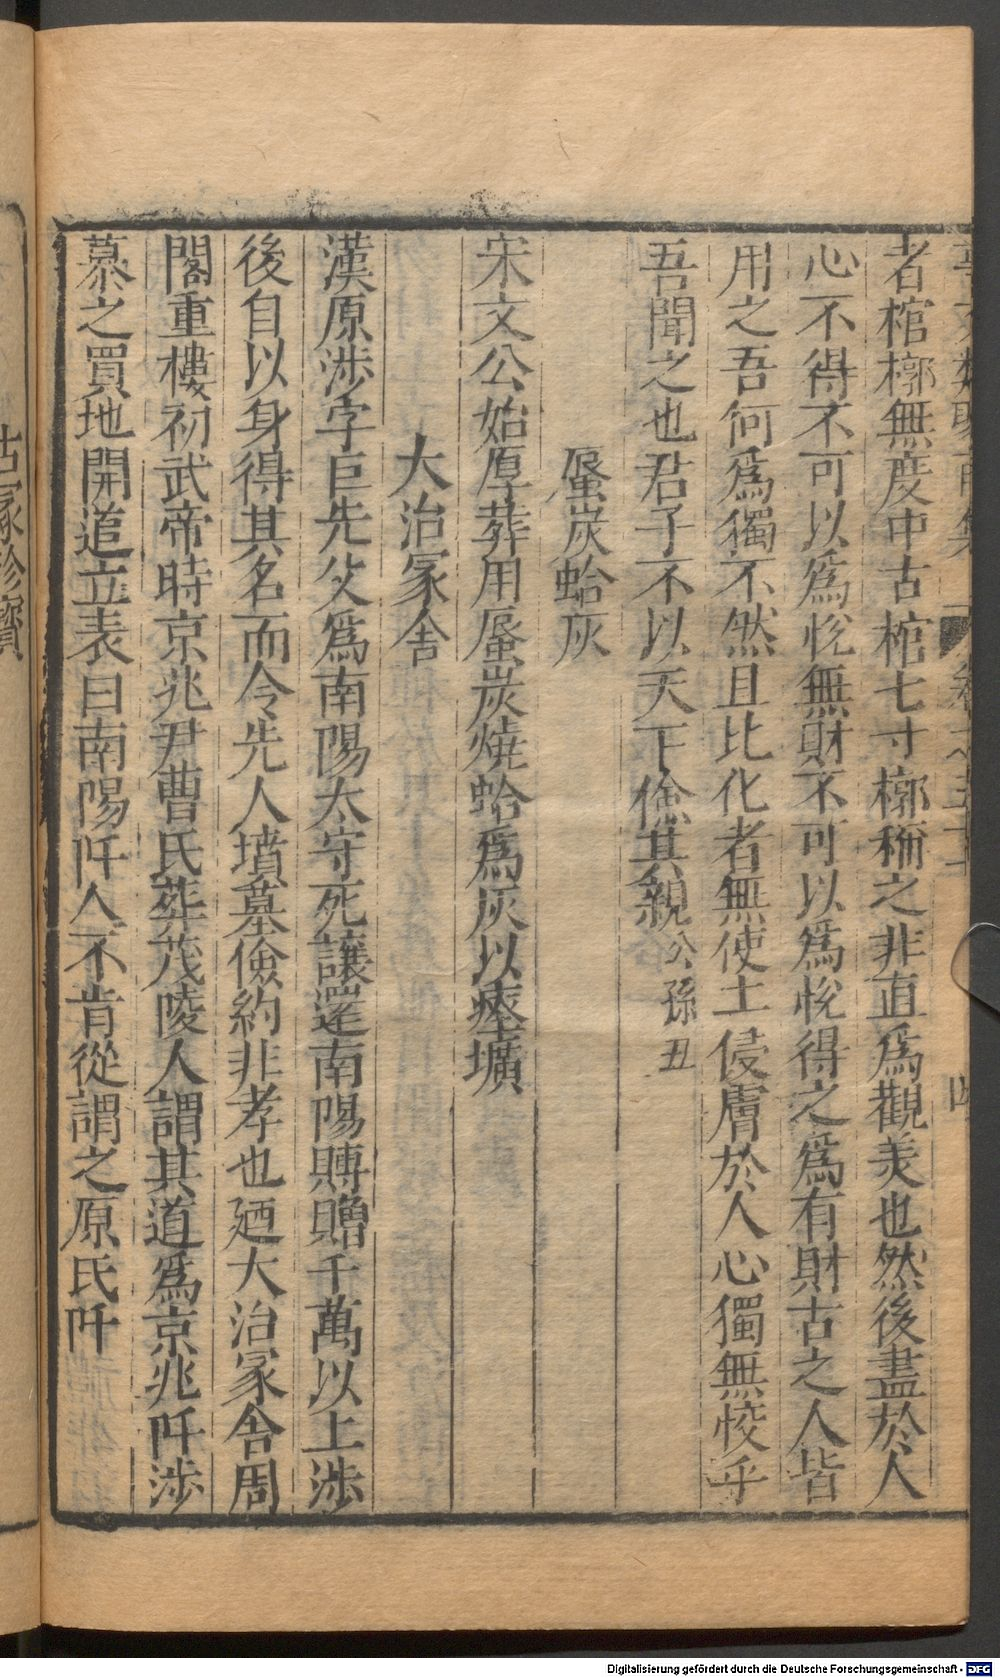 者棺槨無度中古棺七寸槨稱之非直爲觀美也然後盡於人
心不得不可以爲悅無財不可以爲悅得之爲有財古之人皆
用之吾何爲獨不然且比化者無使土侵膚於人心獨無恔乎
吾聞之也君子不以天下儉其親公孫丑
蜃炭蛤灰
宋文公始厚葬用蜃炭燒蛤爲灰以瘞壙
大治冢舍
漢原涉字巨先父爲南陽太守死讓還南陽賻贈千萬以上涉
後自以身得其名而令先人墳墓儉約非孝也廼大治冢舍周
閣重樓初武帝時京兆尹曹氏葬茂陵人謂其道爲京兆阡涉
慕之買地開道立表曰南陽阡人不肯從謂之原氏阡
古冢珍寶
Digitalisierung gefördert durch die Deutsche Forschungsgemeinschaft - DFG